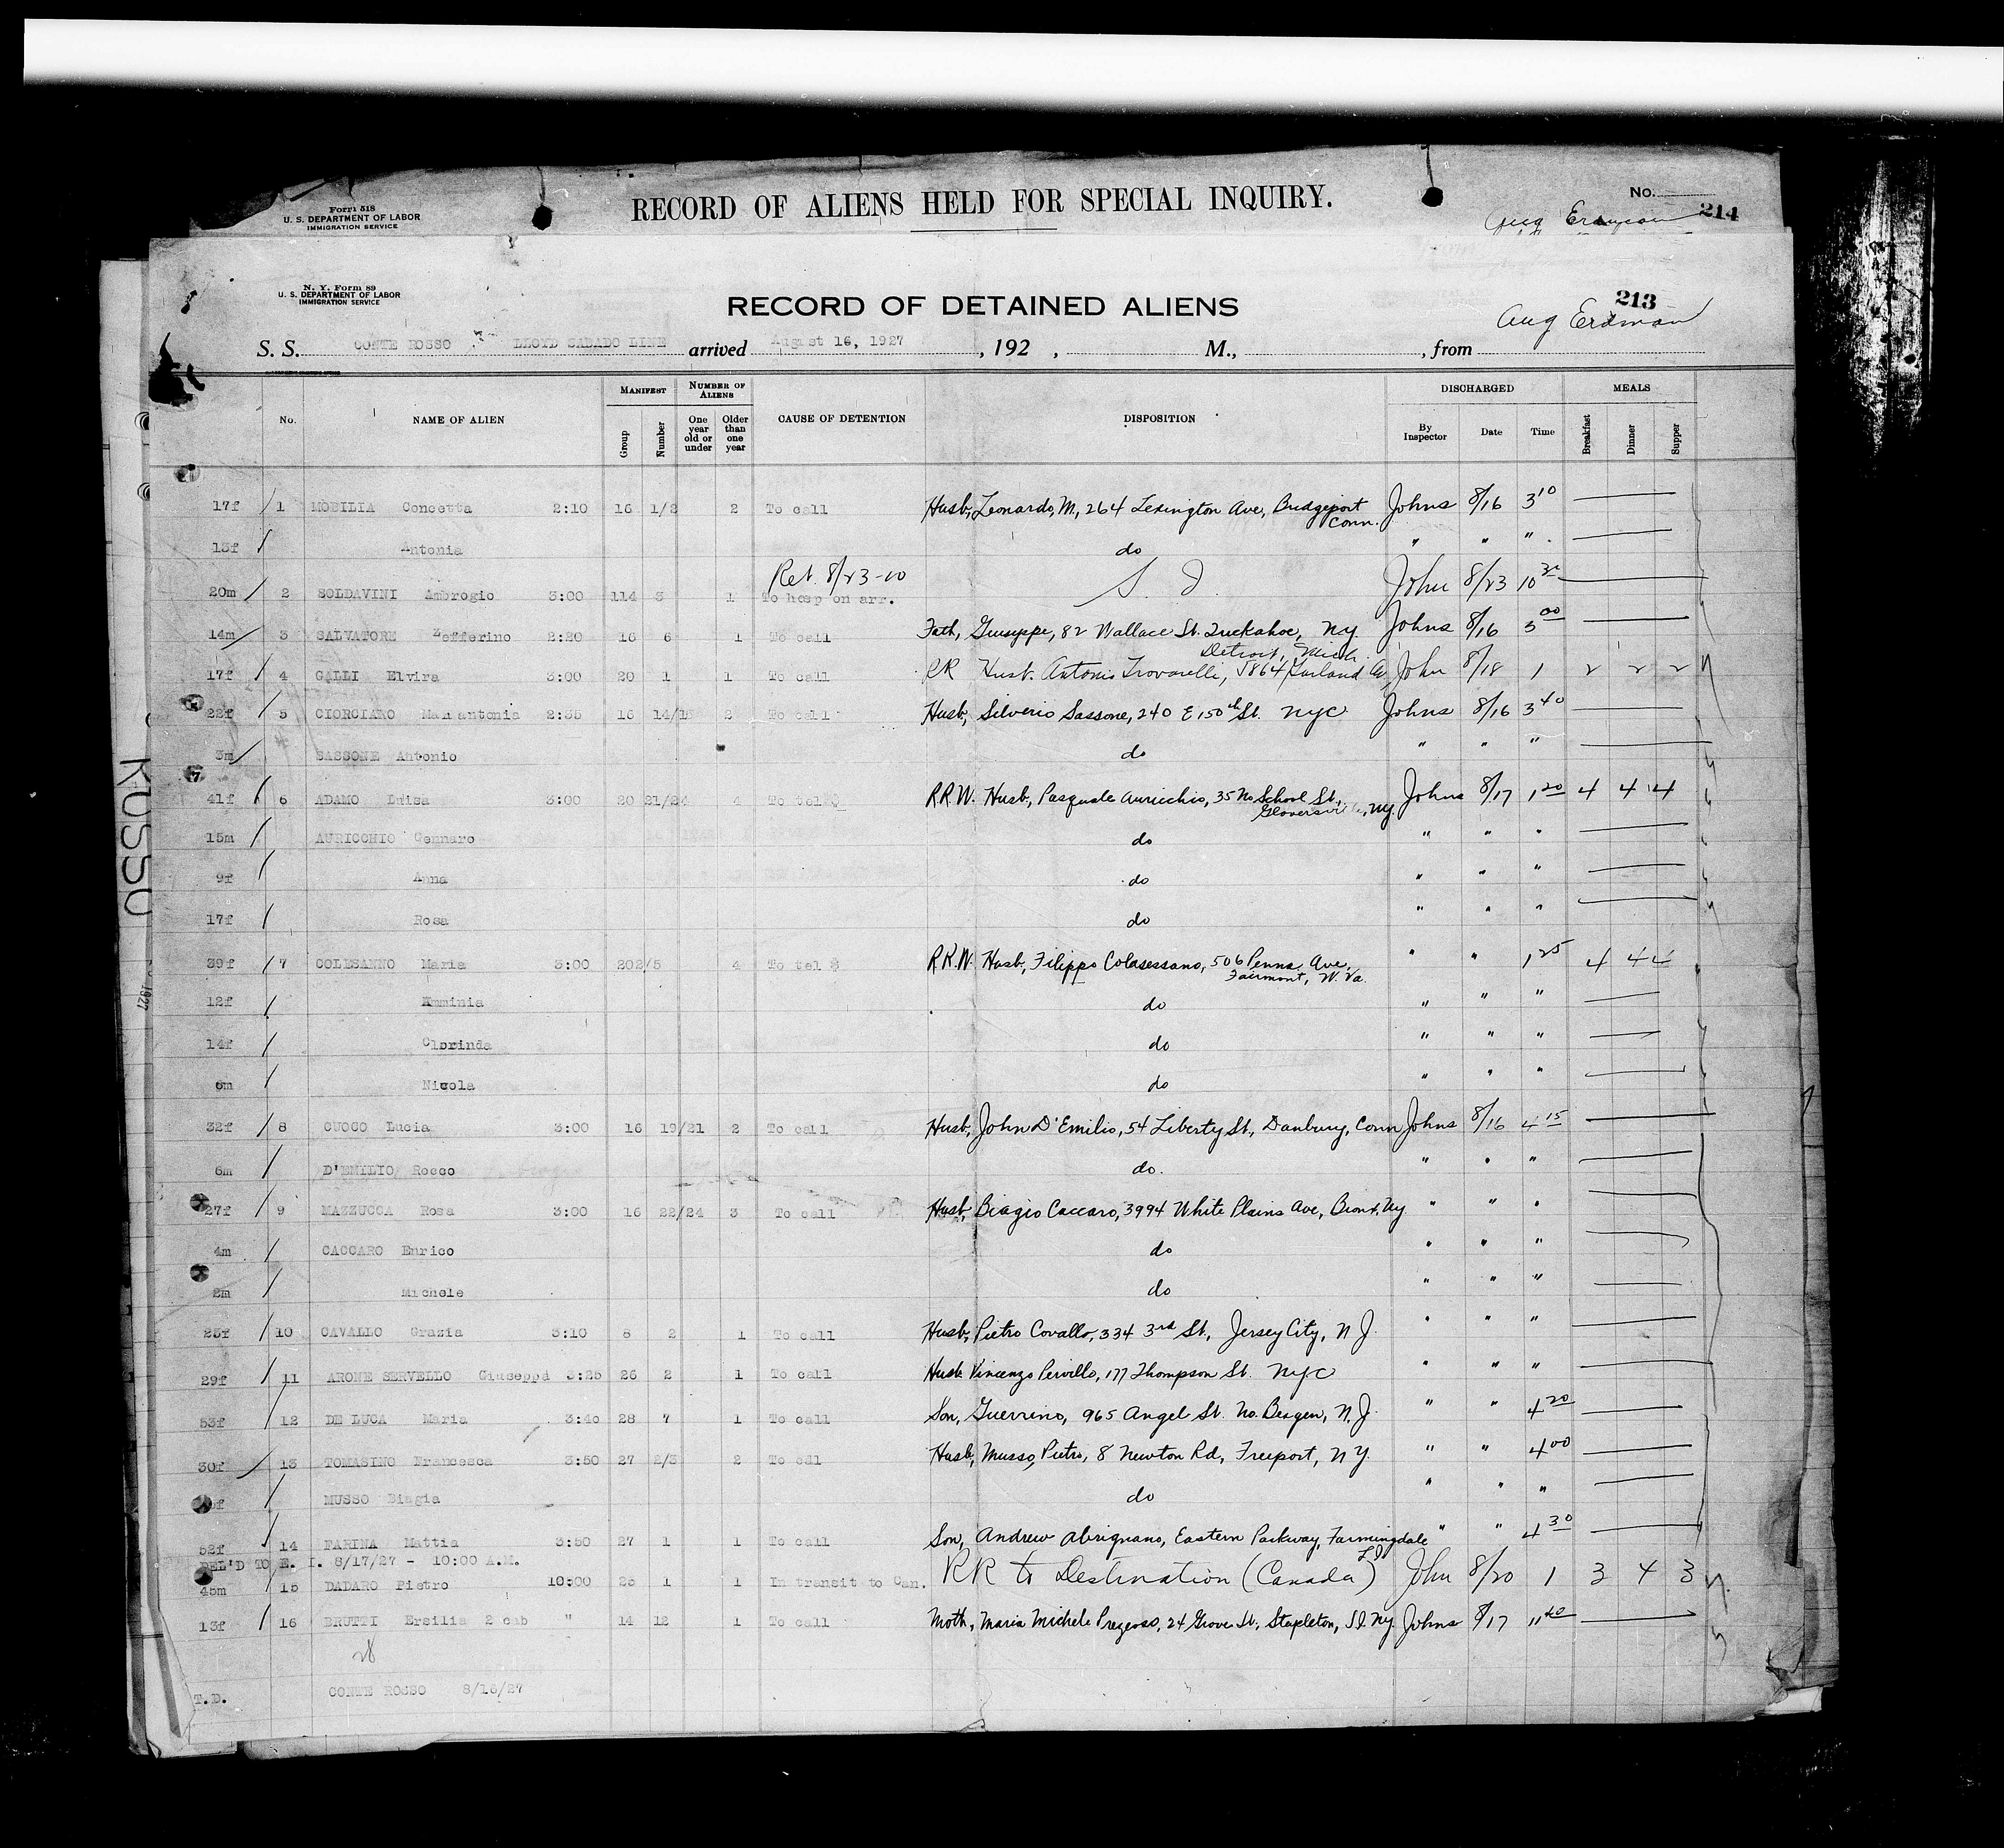 Form 518
U. S. DEPARTMENT OF LABOR
IMMIGRATION SERVICE
RECORD OF ALIENS HELD FOR SPECIAL INQUIRY.
No.
214
Aug Erdman
N. Y. Form 89
U. S. DEPARTMENT OF LABOR
IMMIGRATION SERVICE
RECORD OF DETAINED ALIENS
213
Aug Erdman
S. S. CONTE ROSSO LLOYD SABADO LINE arrived August 16, 1927, 192 , M., , from
No. NAME OF ALIEN MANIFEST Group Number NUMBER OF ALIENS One year old or under Older than one year CAUSE OF DETENTION DISPOSITION DISCHARGED By Inspector Date Time MEALS Breakfast Dinner Supper
17f 1 MOBILIA Concetta 2:10 16 1/2 2 To call Husb, Leonardo, M., 264 Lexington Ave, Bridgeport Conn. Johns 8/16 3 10
13f Antonia do " " "
Ret. 8/23-10
20m 2 SOLDAVINI Ambrogio 3:00 114 3 1 To hosp on arr. S. I. John 8/23 10 30
14m 3 SALVATORE Zefferino 2:20 16 6 1 To call Fath, Giuseppe, 82 Wallace St. Tuckahoe, NY. Johns 8/16 3 00
Detroit, Mich.
17f 4 GALLI Elvira 3:00 20 1 1 To call RR Husb. Antonio Trovarelli, 5864 Garland Av, John 8/18 1 2 2 2
22f 5 CIORCIARO Mariantonia 2:35 16 14/15 2 To call Husb, Silverio Sassone, 240 E 150th St. NYC Johns 8/16 3 40
3m SASSONE Antonio do " " "
41f 6 ADAMO Luisa 3:00 20 21/24 4 To tel RRW. Husb, Pasquale Auricchio, 35 No School St., Johns 8/17 1 20 4 4 4
NY.
15m AURICCHIO Gennaro do " " "
9f Anna do " " "
17f Rosa do " " "
39f 7 COLESANNO Maria 3:00 20 2/5 4 To tel RRW. Husb, Filippo Colasessano, 506 Penna. Ave, " " 1 25 4 4 4
Fairmont, W. Va.
12f Amminia do " " "
14f Clorinda do " " "
6m Nicola do " " "
32f 8 CUOCO Lucia 3:00 16 19/21 2 To call Husb, John D'Emilio, 54 Liberty St., Danbury, Conn Johns 8/16 4 15
6m D'EMILIO Rocco do. " " "
27f 9 MAZZUCCA Rosa 3:00 16 22/24 3 To call Husb, Biagio Caccaro, 3994 White Plains Ave, Bronx, NY " " "
4m CACCARO Enrico do " " "
2m Michele do " " "
25f 10 CAVALLO Grazia 3:10 8 2 1 To call Husb, Pietro Covallo, 334 3rd St., Jersey City, N J. " " "
29f 11 ARONE SERVELLO Giuseppa 3:25 26 2 1 To call Husb. Vincenzo Pervillo, 177 Thompson St. NYC " " "
53f 12 DE LUCA Maria 3:40 28 7 1 To call Son, Guerrino, 965 Angel St. No. Bergen, N. J. " " 4 20
30f 13 TOMASINO Francesca 3:50 27 2/3 2 To call Husb, Musso, Pietro, 8 Newton Rd, Freeport, N Y. " " 4 00
MUSSO Biagia do " " "
52f 14 FARINA Mattia 3:50 27 1 1 To call Son, Andrew Abrignano, Eastern Parkway, Farmingdale " " 4 30
L I
DEL'D TO E. I. 8/17/27 - 10:00 A.M.
45m 15 DADARO Pietro 10:00 25 1 1 In transit to Can. RR to Destination (Canada) John 8/20 1 3 4 3
13f 16 BRUTTI Ersilia 2 cab " 14 12 1 To call Moth, Maria Michele Prezioso, 24 Grove St., Stapleton, S.I. NY. Johns 8/17 11 40
28
T.D. CONTE ROSSO 8/16/27